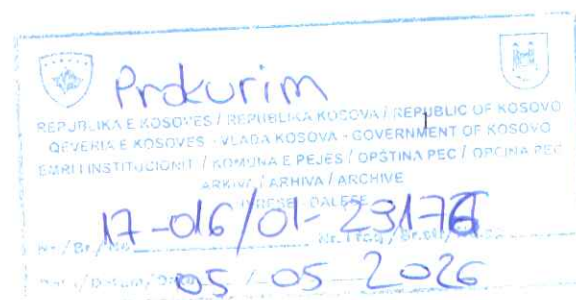 Prokurim
REPUBLIKA E KOSOVËS / REPUBLIKA KOSOVA / REPUBLIC OF KOSOVO
QEVERIA E KOSOVËS - VLADA KOSOVA - GOVERNMENT OF KOSOVO
EMRI I INSTITUCIONIT / KOMUNA E PEJËS / OPŠTINA PEĆ / OPĆINA PEĆ
ARKIVA / ARHIVA / ARCHIVE
DALËSE
17-016/01-23176
Nr./Br./No.
05 -05- 2026